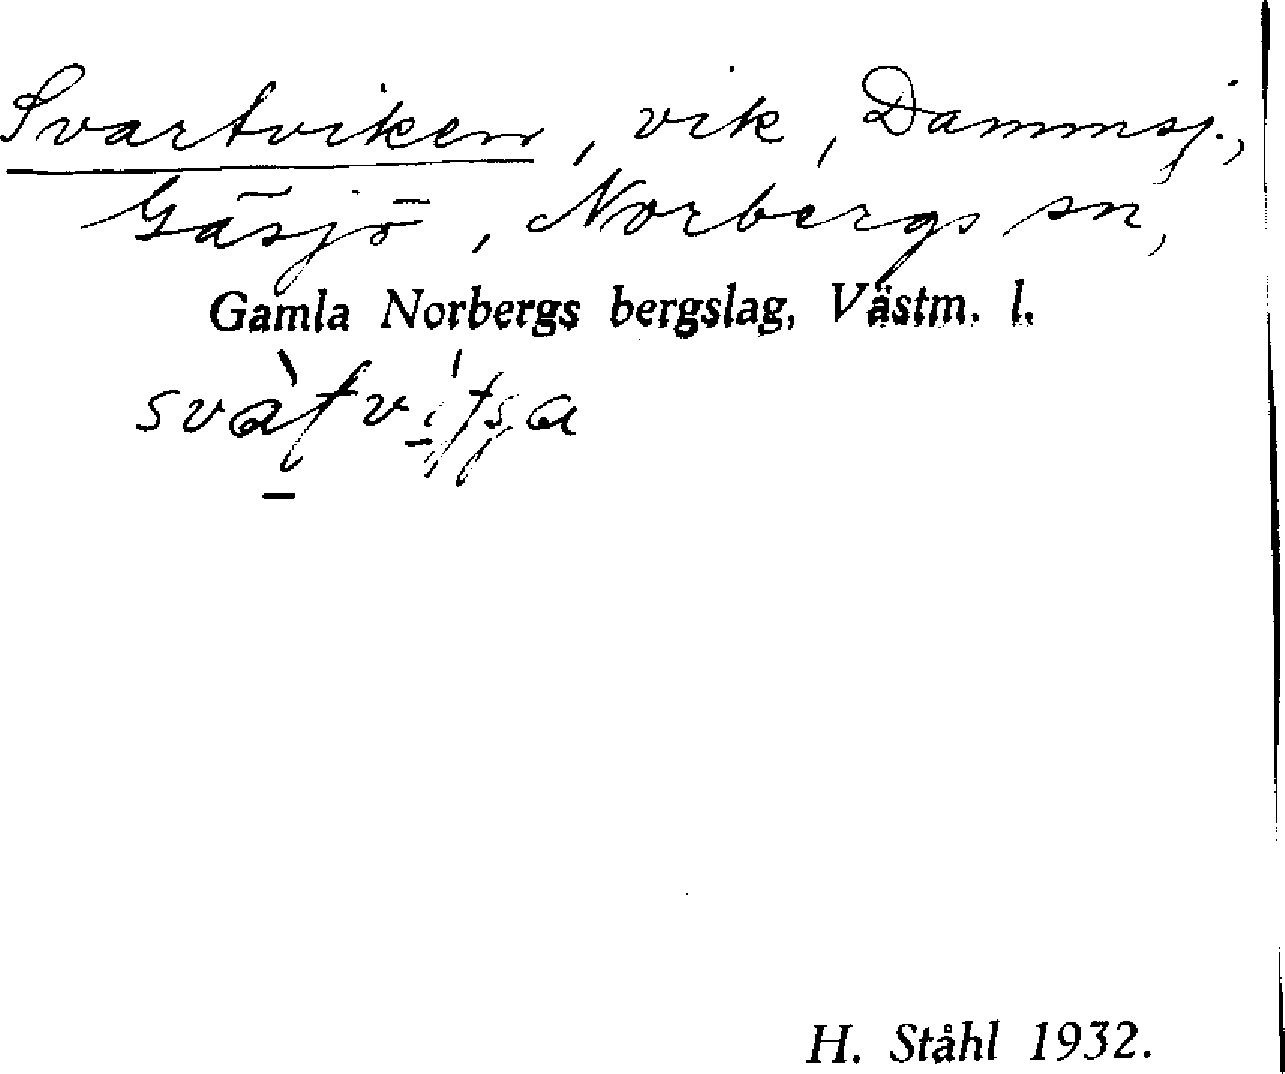 Svartviken, vik, Dammsj.,
Gäsjö, Norbergs sn,
Gamla Norbergs bergslag, Västm. l.
H. Ståhl 1932.